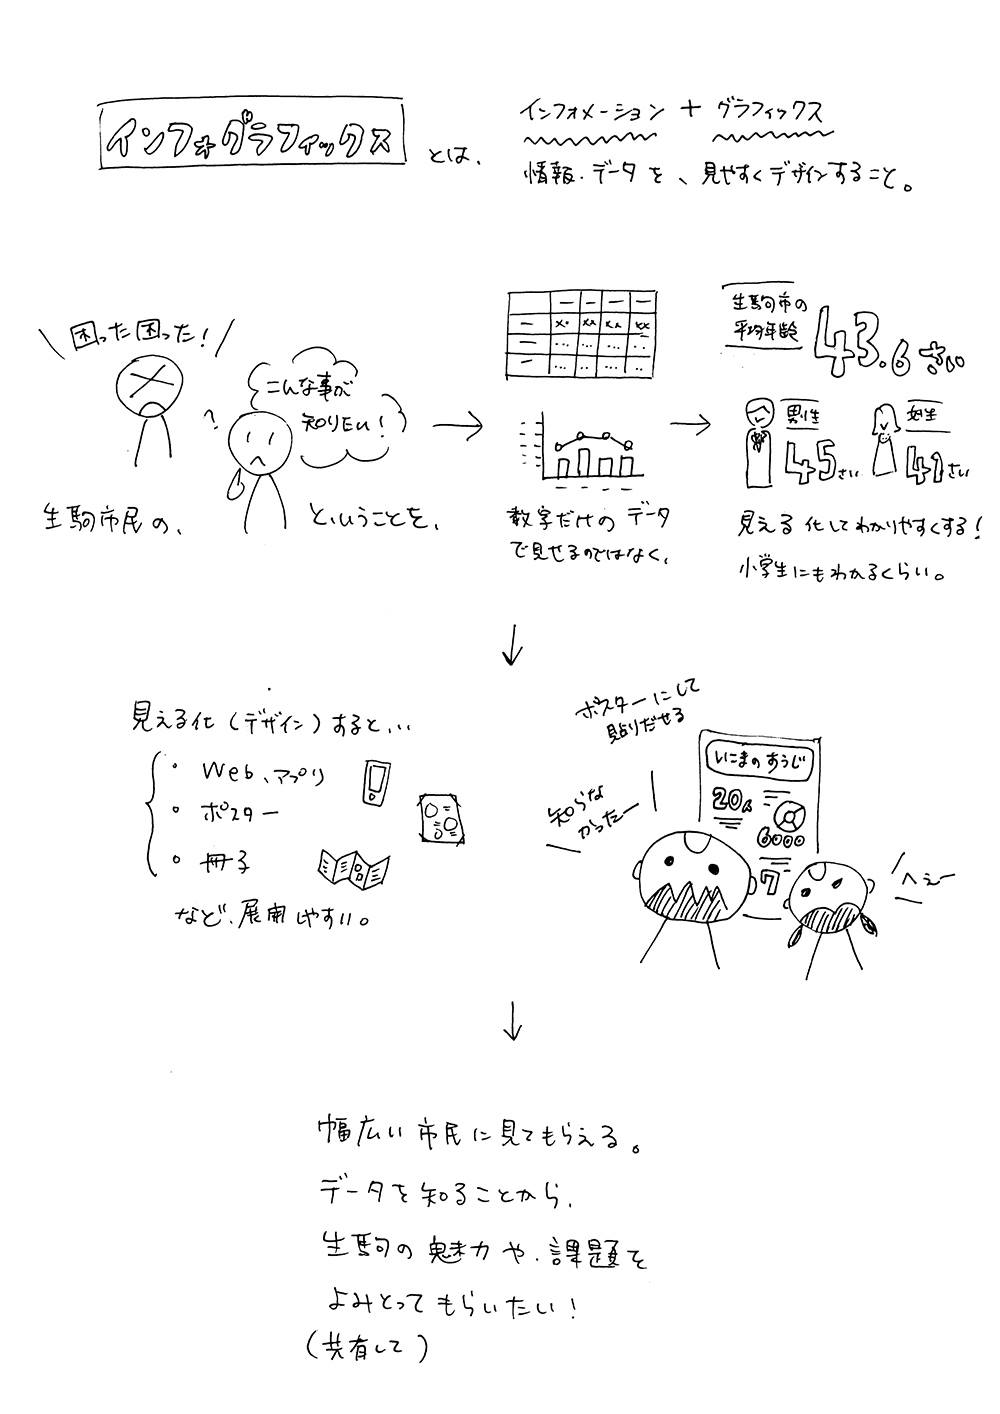 インフォグラフィックス とは、
インフォメーション + グラフィックス
情報・データを、見やすくデザインすること。
困った困った!
?
こんな事が
知りたい!
生駒市民の、
ということを、
数字だけのデータ
で見せるのではなく、
生駒市の
平均年齢
43.6さい
男性
45さい
女性
41さい
見える化してわかりやすくする!
小学生にもわかるくらい。
見える化(デザイン)すると...
・Web、アプリ
・ポスター
・冊子
など、展開しやすい。
ポスターにして
貼りだせる
知らな
かったー
いこまのすうじ
20人
6000
7
へぇー
幅広い市民に見てもらえる。
データを知ることから、
生駒の魅力や、課題を
よみとってもらいたい!
(共有して)